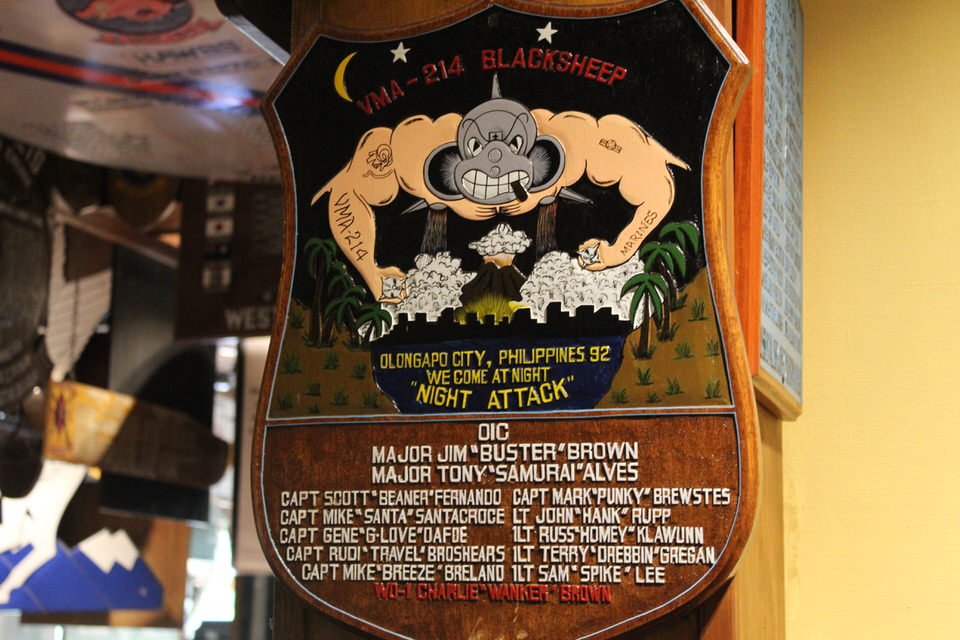 HAWKS
VMA-214 BLACKSHEEP
VMA-214
MARINES
WES
OLONGAPO CITY, PHILIPPINES 92
WE COME AT NIGHT
"NIGHT ATTACK"
OIC
MAJOR JIM "BUSTER" BROWN
MAJOR TONY "SAMURAI" ALVES
CAPT SCOTT "BEANER" FERNANDO CAPT MARK "PUNKY" BREWSTES
CAPT MIKE "SANTA" SANTACROCE LT JOHN "HANK" RUPP
CAPT GENE "G-LOVE" OAFOE 1LT RUSS "HOMEY" KLAWUNN
CAPT RUDI "TRAVEL" BROSHEARS 1LT TERRY "DREBBIN" GREGAN
CAPT MIKE "BREEZE" BRELAND 1LT SAM "SPIKE" LEE
WO-1 CHARLIE "WANKER" BROWN